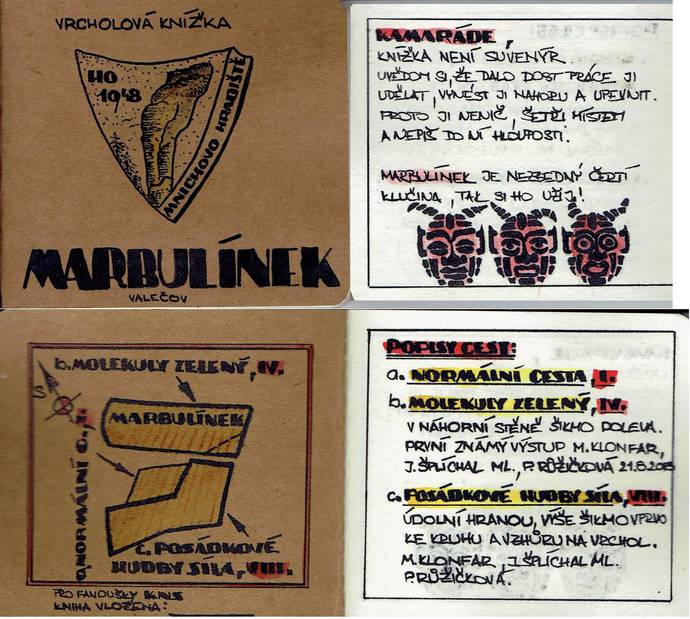 VRCHOLOVÁ KNÍŽKA
HO
1948
MNICHOVO HRADIŠTĚ
MARBULÍNEK
VALEČOV
KAMARÁDE,
KNÍŽKA NENÍ SUVENÝR.
UVĚDOM SI, ŽE DALO DOST PRÁCE JI
UDĚLAT, VYNÉST JI NAHORU A UPEVNIT.
PROTO JI NENIČ, ŠETŘI MÍSTEM
A NEPIŠ DO NÍ HLOUPOSTI.
MARBULÍNEK JE NEZBEDNÝ ČERTÍ
KLUČINA, TAK SI HO UŽIJ!
b. MOLEKULY ZELENÝ, IV.
S
MARBULÍNEK
a. NORMÁLNÍ C. I.
c. POSÁDKOVÉ
HUDBY SÍLA, VIII.
PRO FANOUŠKY
KNIHA VLOŽENA:
POPISY CEST:
a. NORMÁLNÍ CESTA, I.
b. MOLEKULY ZELENÝ, IV.
V NÁHORNÍ STĚNĚ ŠIKMO DOLEVA.
PRVNÍ ZNÁMÝ VÝSTUP M. KLONFAR,
J. ŠPLÍCHAL ML., P. RŮŽIČKOVÁ
c. POSÁDKOVÉ HUDBY SÍLA, VIII.
ÚDOLNÍ HRANOU, VÝŠE ŠIKMO VPRVO
KE KRUHU A VZHŮRU NA VRCHOL.
M. KLONFAR, J. ŠPLÍCHAL ML.
P. RŮŽIČKOVÁ.